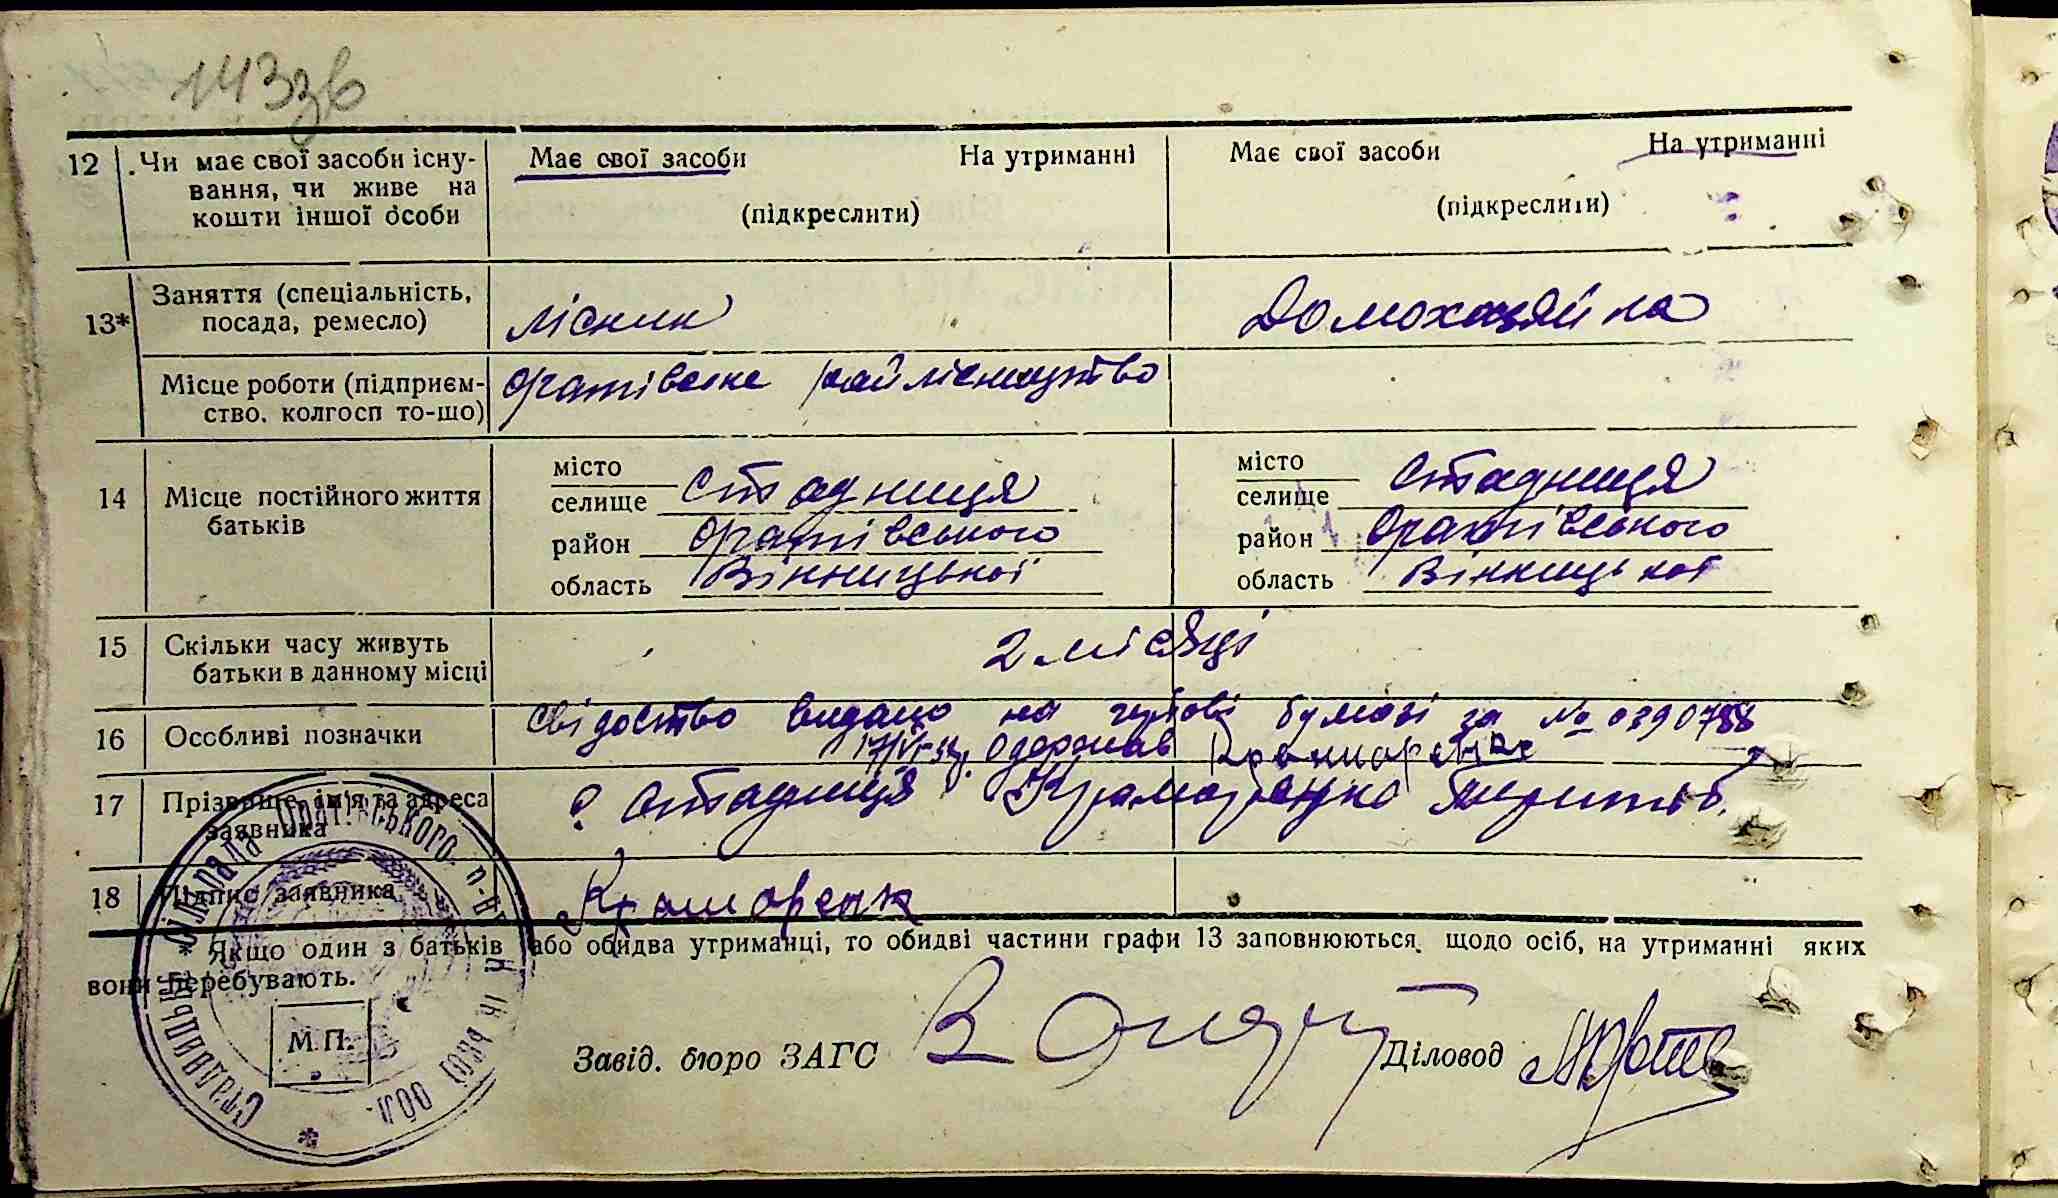 143зв
12 Чи має свої засоби існу- Має свої засоби На утриманні Має свої засоби На утриманні
вання, чи живе на
кошти іншої особи (підкреслити) (підкреслити)
13* Заняття (спеціальність, лісник Домохазяйка
посада, ремесло)
Місце роботи (підприєм- Оратівське райлісництво
ство, колгосп то-що)
місто місто
14 Місце постійного життя селище Стадниця селище Стадниця
батьків район Оратівського район Оратівського
область Вінницької область Вінницької
15 Скільки часу живуть 2 місяці
батьки в данному місці
16 Особливі позначки свідоство видано на бумазі за № 0390788
одержав Крамаренко
17 Прізвище, ім'я та адреса с. Стадниця Крамаренко
заявника
18 Підпис заявника Крамаренк
Якщо один з батьків або обидва утриманці, то обидві частини графи 13 заповнюються щодо осіб, на утриманні яких
вони перебувають.
М.П.
Завід. бюро ЗАГС Діловод
сільрада Оратівського р-ну обл.